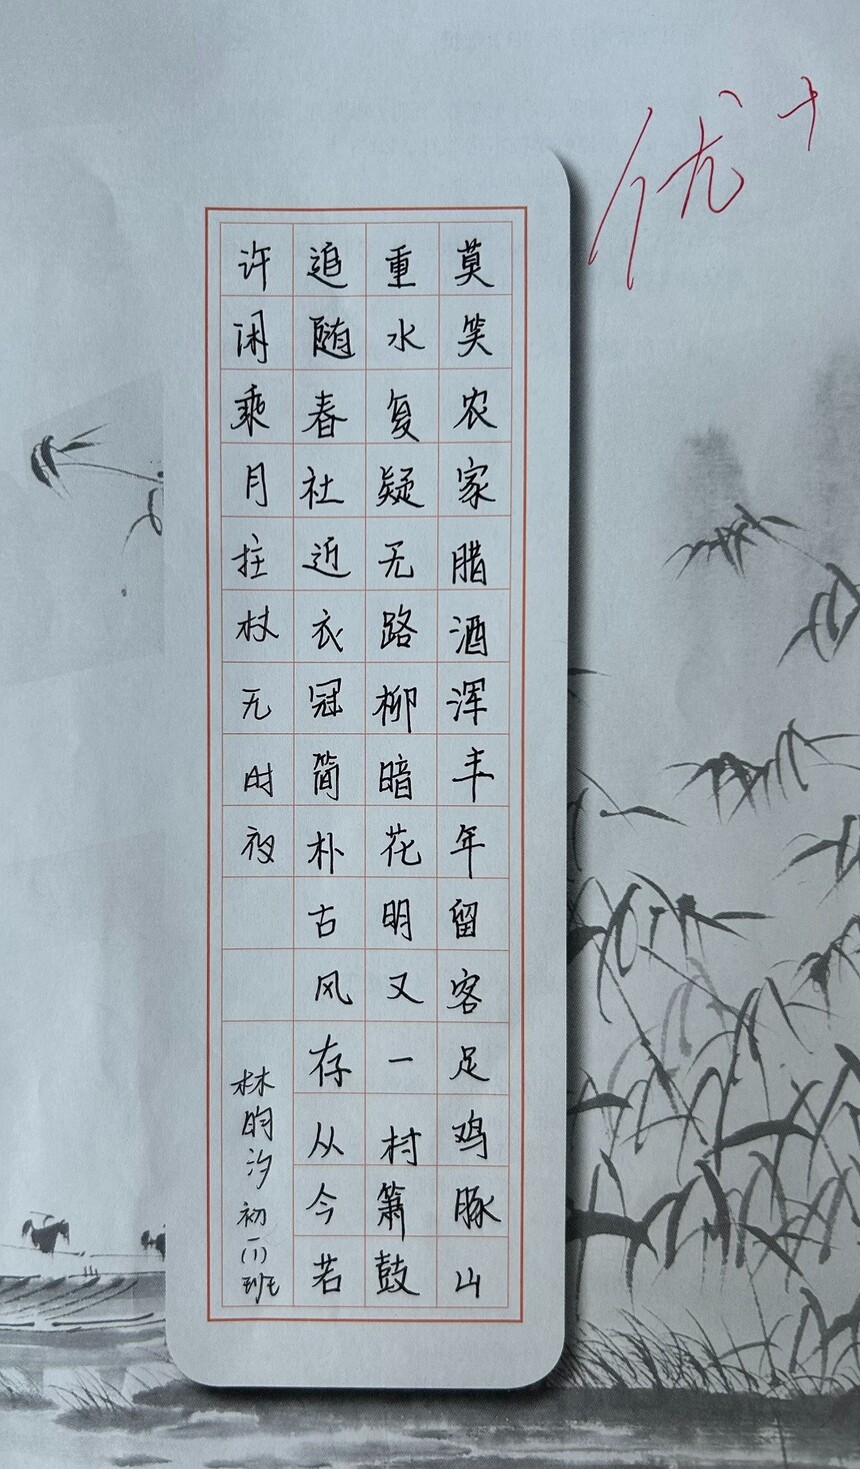 优+
莫笑农家腊酒浑丰年留客足鸡豚山
重水复疑无路柳暗花明又一村箫鼓
追随春社近衣冠简朴古风存从今若
许闲乘月拄杖无时夜
林昀汐 初一(1)班